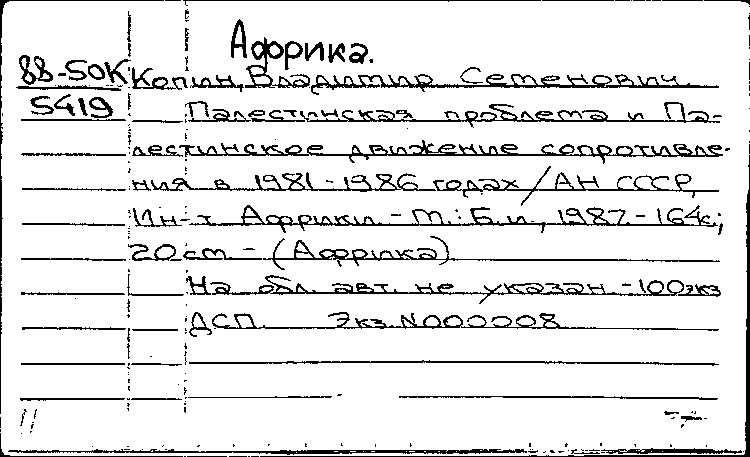 Африка.
88-50К Копин, Владимир Семенович.
5419 Палестинская проблема и Па-
лестинское движение сопротивле-
ния в 1981-1986 годах / АН СССР,
Ин-т Африки. - М.: Б.и., 1987. - 164с.;
20 см. - (Африка).
На обл. авт. не указан. - 100 экз
ДСП. Экз. N000008
11